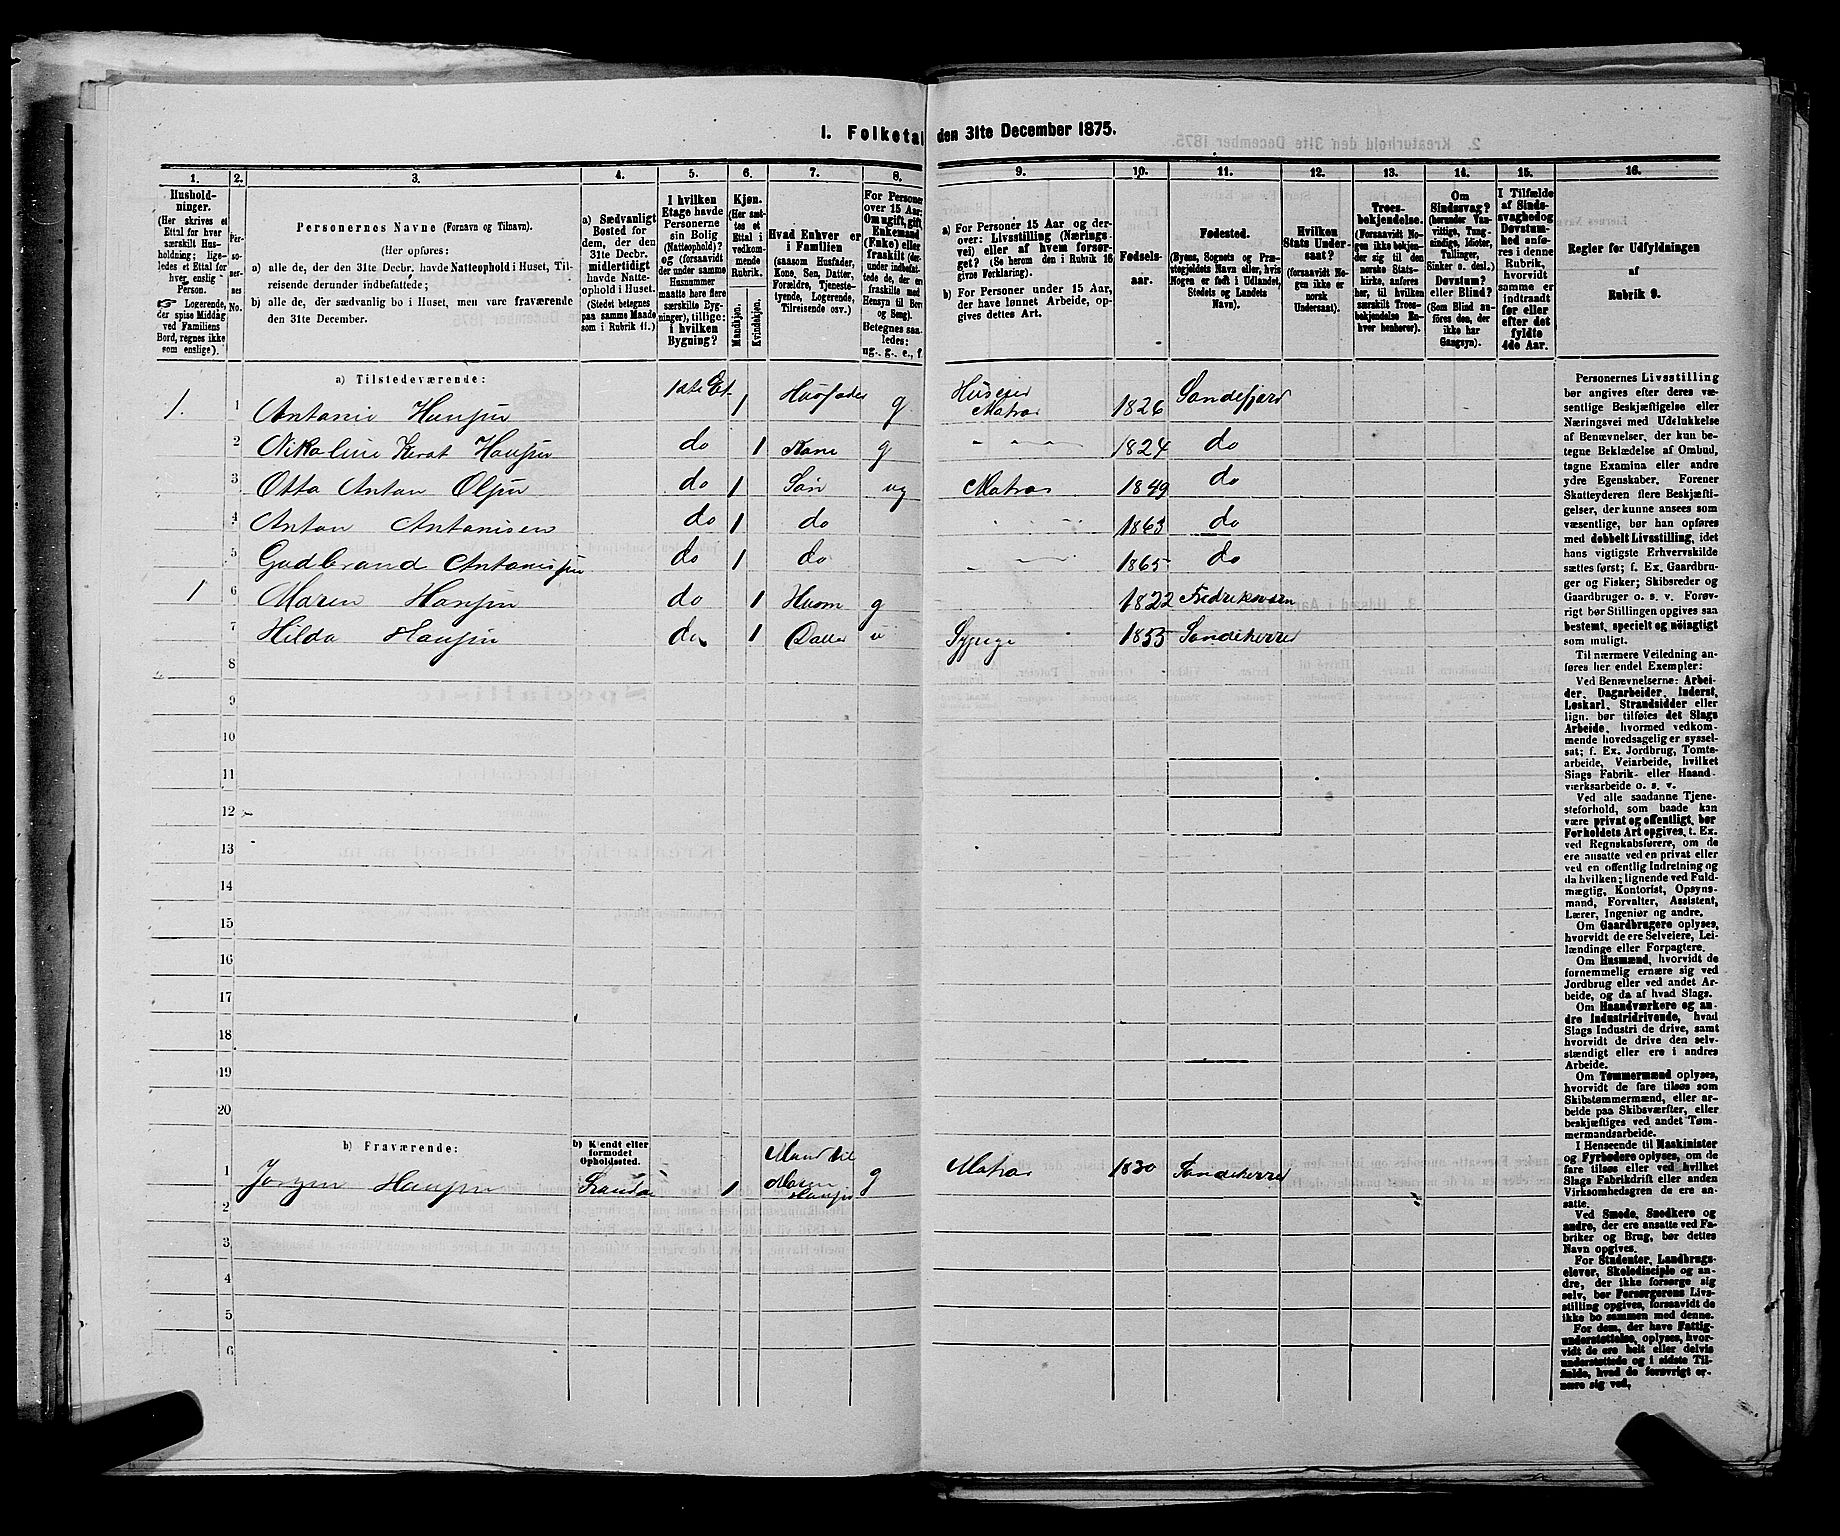 I. Folketal den 31te December 1875.
1. 2. 3. 4. 5. 6. 7. 8. 9. 10. 11. 12. 13. 14. 15. 16.
Hushold-
ninger.
(Her skrives et
Ettal for hver
særskilt Hus-
holdning; lige-
ledes et Ettal for
hver enslig
Person.
☞ Logerende,
der spise Middag
ved Familiens
Bord, regnes ikke
som enslige).
Per-
so-
ner-
nes
No.
Personernes Navne (Fornavn og Tilnavn).
(Her opføres:
a) alle de, der den 31te Decbr. havde Natteophold i Huset, Til-
reisende derunder indbefattede;
b) alle de, der sædvanlig bo i Huset, men vare fraværende
den 31te December.
a) Sædvanligt
Bosted for
dem, der den
31te Decbr.
midlertidigt
havde Natte-
ophold i Huset.
(Stedet betegnes
paa samme Maade
som i Rubrik 11.)
I hvilken
Etage havde
Personerne
sin Bolig
(Natteophold)?
og (forsaavidt
der under samme
Husnummer
maatte høre flere
særskilte Byg-
ninger), tillige:
i hvilken
Bygning?
Kjøn.
(Her sæt-
tes et
Ettal i
vedkom-
mende
Rubrik.
Mandkjøn.
Kvindekjøn.
Hvad Enhver er
i Familien
(saasom Husfader,
Kone, Søn, Datter,
Forældre, Tjeneste-
tyende, Logerende,
Tilreisende osv.)
For Personer
over 15 Aar:
Om ugift, gift,
Enkemand
(Enke) eller
fraskilt (der-
under indbefat-
tede de, der ere
fraskilte med
Hensyn til Bord
og Seng).
Betegnes saa-
ledes:
ug., g., e., f.
a) For Personer 15 Aar og der-
over: Livsstilling (Nærings-
vei) eller af hvem forsør-
get? (Se herom den i Rubrik 16
givne Forklaring).
b) For Personer under 15 Aar,
der have lønnet Arbeide, op-
gives dettes Art.
Fødsels-
aar.
Fødested.
(Byens, Sognets og Præ-
stegjeldets Navn eller, hvis
Nogen er født i Udlandet,
Stedets og Landets
Navn).
Hvilken
Stats Under-
saat?
(forsaavidt No-
gen ikke er
norsk
Undersaat).
Troes-
bekjendelse.
(Forsaavidt No-
gen ikke bekjen-
der sig til den
norske Stats-
kirke, anføres
her, til hvilken
særskilt Troes-
bekjendelse En-
hver henhører).
Om
Sindssvag?
(herunder Van-
vittige, Tung-
sindige, Idioter,
Tullinger,
Sinker o. desl.)
Døvstum?
eller Blind?
(Som Blind an-
føres den, der
ikke har
Gangsyn).
I Tilfælde
af Sinds-
svaghed og
Døvstum-
hed anfø-
res i denne
Rubrik,
hvorvidt
samme er
indtraadt
før eller
efter det
fyldte
4de Aar.
Regler for Udfyldningen
af
Rubrik 9.
a) Tilstedeværende:
1. 1 Antonio Hansen 1ste Et. 1 Husfader g Huseier Matros 1826 Sandefjord
2 Nikoline Hansen do 1 Kone g 1824 do
3 Otto Anton Olsen do 1 Søn ug Matros 1849 do
4 Anton Antonisen do 1 do 1863 do
5 Gudbrand Antonisen do 1 do 1865 do
1 6 Maren Hansen do 1 g 1822 Fredriksværn
7 Hilda Hansen do 1 Datter u Sypige 1855 Sandeherred
8
9
10
11
12
13
14
15
16
17
18
19
20
b) Fraværende:
b) Kjendt eller
formodet
Opholdssted.
1 Jørgen Hansen 1 Mand til Maren Hansen g Matros 1830 Sandeherred
2
3
4
5
6
Personernes Livsstilling
bør angives efter deres væ-
sentlige Beskjæftigelse eller
Næringsvei med Udelukkelse
af Benævnelser, der kun be-
tegne Beklædelse af Ombud,
tagne Examina eller andre
ydre Egenskaber. Forener
Skatteyderen flere Beskjæfti-
gelser, der kunne ansees som
væsentlige, bør han opføres
med dobbelt Livsstilling, idet
hans vigtigste Erhvervskilde
sættes først; f. Ex. Gaardbru-
ger og Fisker; Skibsreder og
Gaardbruger o. s. v. Forøv-
rigt bør Stillingen opgives saa
bestemt, specielt og nøiagtigt
som muligt.
Til nærmere Veiledning an-
føres her endel Exempler:
Ved Benævnelserne: Arbei-
der, Dagarbeider, Inderst,
Løskarl, Strandsidder eller
lign. bør tilføies det Slags
Arbeide, hvormed vedkom-
mende hovedsagelig er syssel-
sat; f. Ex. Jordbrug, Tomte-
arbeide, Veiarbeide, hvilket
Slags Fabrik- eller Haand-
værksarbeide o. s. v.
Ved alle saadanne Tjene-
steforhold, som baade kan
være privat og offentligt, bør
Forholdets Art opgives, t. Ex.
ved Regnskabsførere, om de
ere ansatte ved en privat eller
ved en offentlig Indretning og
da hvilken; lignende ved Fuld-
mægtig, Kontorist, Opsyns-
mand, Forvalter, Assistent,
Lærer, Ingeniør og andre.
Om Gaardbrugere oplyses,
hvorvidt de ere Selveiere, Lei-
lændinge eller Forpagtere.
Om Husmænd, hvorvidt de
fornemmelig ernære sig ved
Jordbrug eller ved andet Ar-
beide, og da af hvad Slags.
Om Haandværkere og an-
dre Industridrivende, hvad
Slags Industri de drive, samt
hvorvidt de drive den selv-
stændigt eller ere i andres
Arbeide.
Om Tømmermænd oplyses,
hvorvidt de fare tilsøs som
Skibstømmermænd, eller ar-
beide paa Skibsværfter, eller
beskjæftiges ved andet Tøm-
mermandsarbeide.
I Henseende til Maskinister
og Fyrbødere oplyses, om de
fare tilsøs eller ved hvilket
Slags Fabrikdrift eller anden
Virksomhedsgren de ere an-
satte.
Ved Smede, Snedkere og
andre, der ere ansatte ved Fa-
briker og Brug, bør dettes
Navn opgives.
For Studenter, Landbrugs-
elever, Skoledisciple og an-
dre, der ikke forsørge sig
selv, bør Forsørgerens Livs-
stilling opgives, forsaavidt de
ikke bo sammen med denne.
For dem, der have Fattig-
understøttelse, oplyses, hvor-
vidt de ere helt eller delvis
understøttede og i sidste Til-
fælde, hvad de forøvrigt er-
nære sig ved.